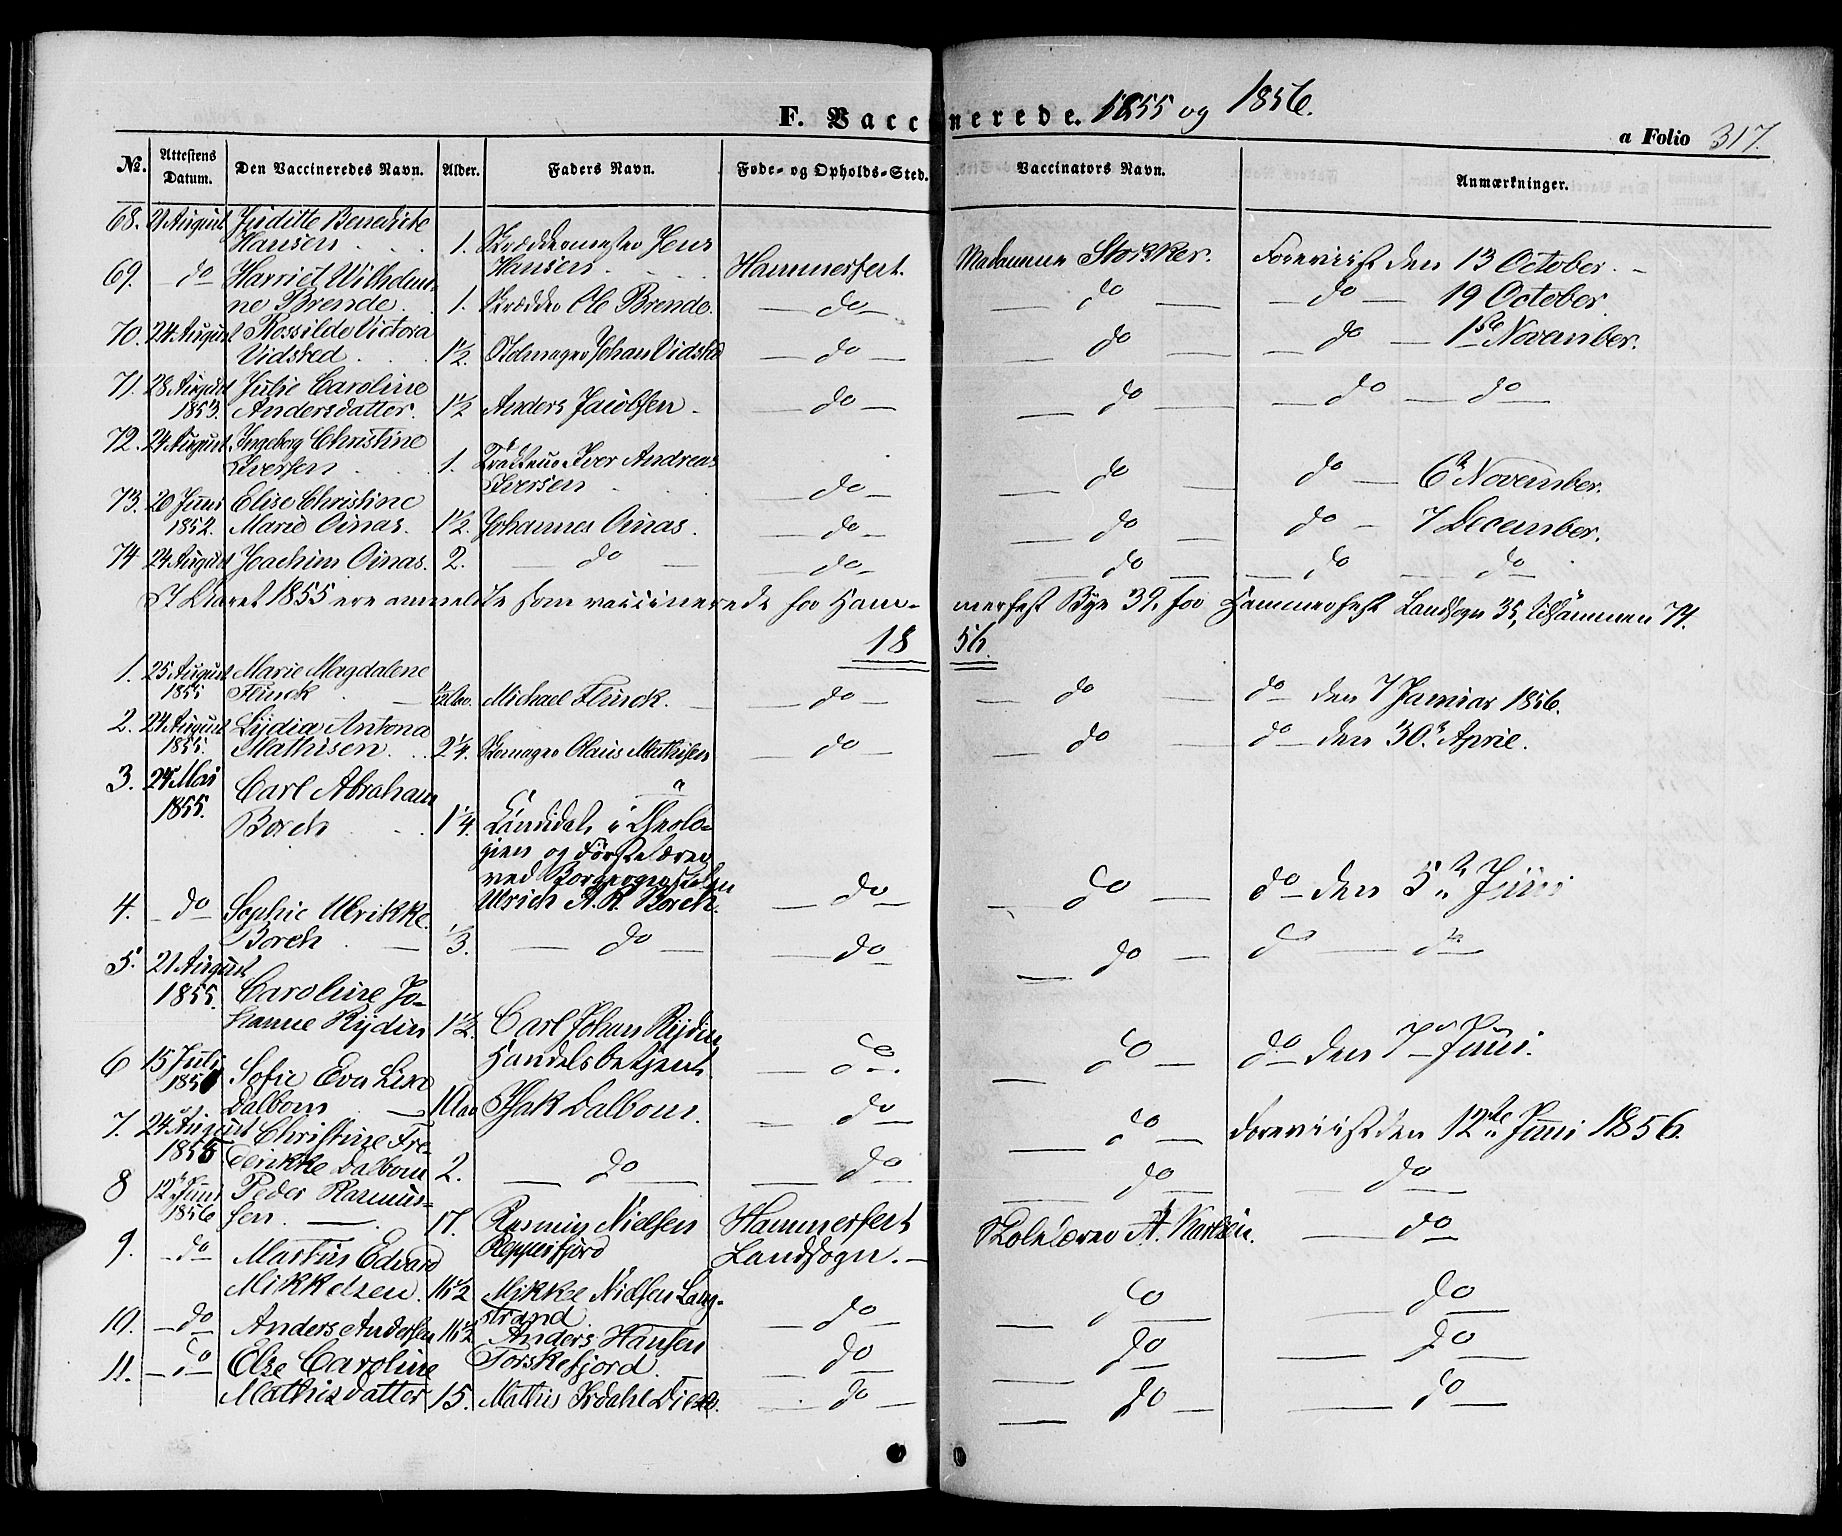 F. Vaccinerede. 1855 og 1856.
a Folio 317.
No. Attestens Datum. Den Vaccineredes Navn. Alder. Faders Navn. Føde- og Opholds-Sted. Vaccinators Navn. Anmærkninger.
68. 21 August Juditte Benedicte
Hansen 1. Skræddermester Jens
Hansen. Hammerfest. Madamme Storkker. Foreviist den 13 October.
69. do Harriet Wilhelmi-
ne Brende. 1. Skrædder Ole Brende. do do do 19 October.
70. 24 August Rossilde Victora
Vidsted. 1½. Johan Vidsted do do do 1ste November.
71. 28 August Julie Caroline
1853. Andersdatter. 1½ Anders Jacobsen. do do do do
72. 24 August. Ingeborg Christine
Iversen 1. Iver Andreas
Iversen do do do 6te November.
73. 20 Juni Elise Christine
1852. Marie Oinas. 1½. Johannes Oinas. do do do 7 December.
74 24 August Joachim Oinas. 2. do do do do do
I Aaret 1855 ere anmeldte som vaccinerede for Ham-merfest Bye 39, for Hammerfest Landsogn 35, tilsammen 74.
1856.
1. 25 August Marie Magdalene
1855 Flinck Michael Flinck. do do do den 7 Januar 1856.
2. 24 August Lydia Antona
1855. Mathisen. 2¼. Skomager Olaus Mathisen do do do den 30. April.
3. 24 Mai Carl Abraham
1855. Borch 1¼. Candidat i Theolo-
gien og Førstelærer
ved Borgerskolen
Ulrich A. R. Borch. do do do den 5te Juni
4. do Sophie Ulrikke
Borch ⅓. do do do do do
5. 21 August
1855. Caroline Jo-
hanne Rydin 1½. Carl Johan Rydin
Handelsbetjent. do do do den 7 Juni.
6 15 Juli Sofie Eva Lise
Dalbom 10 Isak Dalbom. do do Foreviist den 12te Juni 1856.
7. 24 August Christine Fre-
1855 derikke Dalbom 2. do do do do
8 12 Juni Peder Rasmus-
1856 sen. 17. Rasmus Nielsen Hammerfest
Repperfjord Landsogn. Skolelærer A. Karlsen. do
9. do Martin Edvard
Mikkelsen. 16½ Mikkel Nielsen Lang-
strand. do do do
10. do Anders Andersen 16½ Anders Hansen
Torskefjord. do do do
11. do Else Caroline
Mathisdatter. 15. Mathis do do do